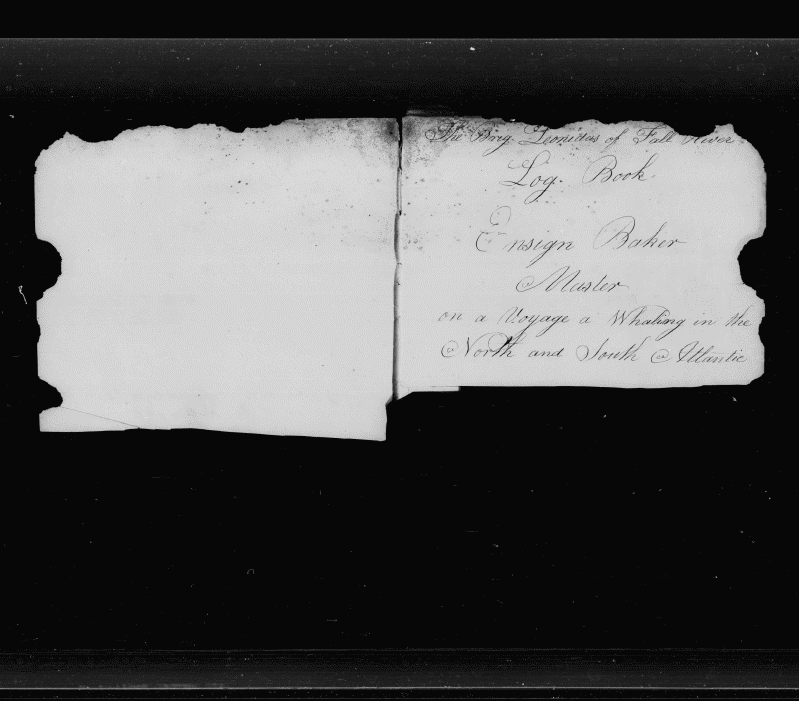 The Brig Leonidas of Fall River
Log Book
Ensign Baker
Master
on a Voyage a Whaling in the
North and South Atlantic